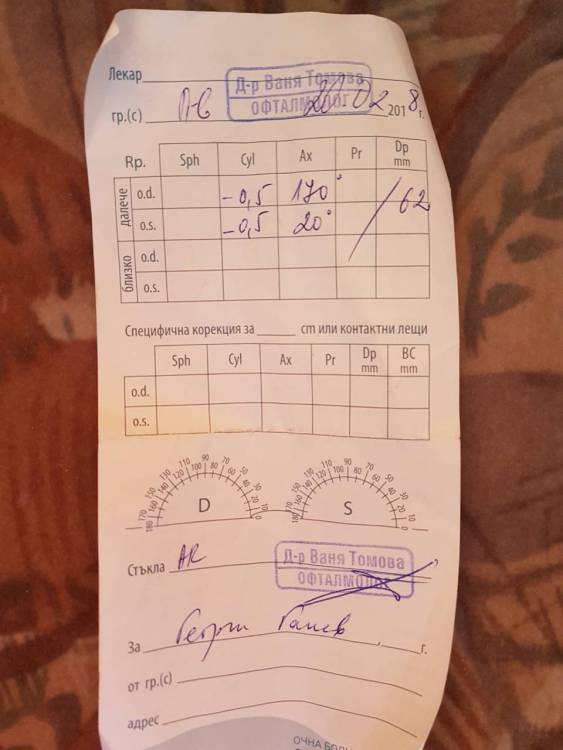 Лекар
Д-р Ваня Томова
ОФТАЛМОЛОГ
гр.(с) 02 2018 г.
Rp. Sph Cyl Ax Pr Dp mm
далече
o.d. -0,5 170°
o.s. -0,5 20° / 62
близко
o.d.
o.s.
Специфична корекция за ______ cm или контактни лещи
Sph Cyl Ax Pr Dp mm BC mm
o.d.
o.s.
180 170 160 150 140 130 120 110 100 90 80 70 60 50 40 30 20 10 0
D
180 170 160 150 140 130 120 110 100 90 80 70 60 50 40 30 20 10 0
S
Стъкла AR
Д-р Ваня Томова
ОФТАЛМОЛОГ
За Георги Ганев, г.
от гр.(с)
адрес
ОЧНА БОЛ